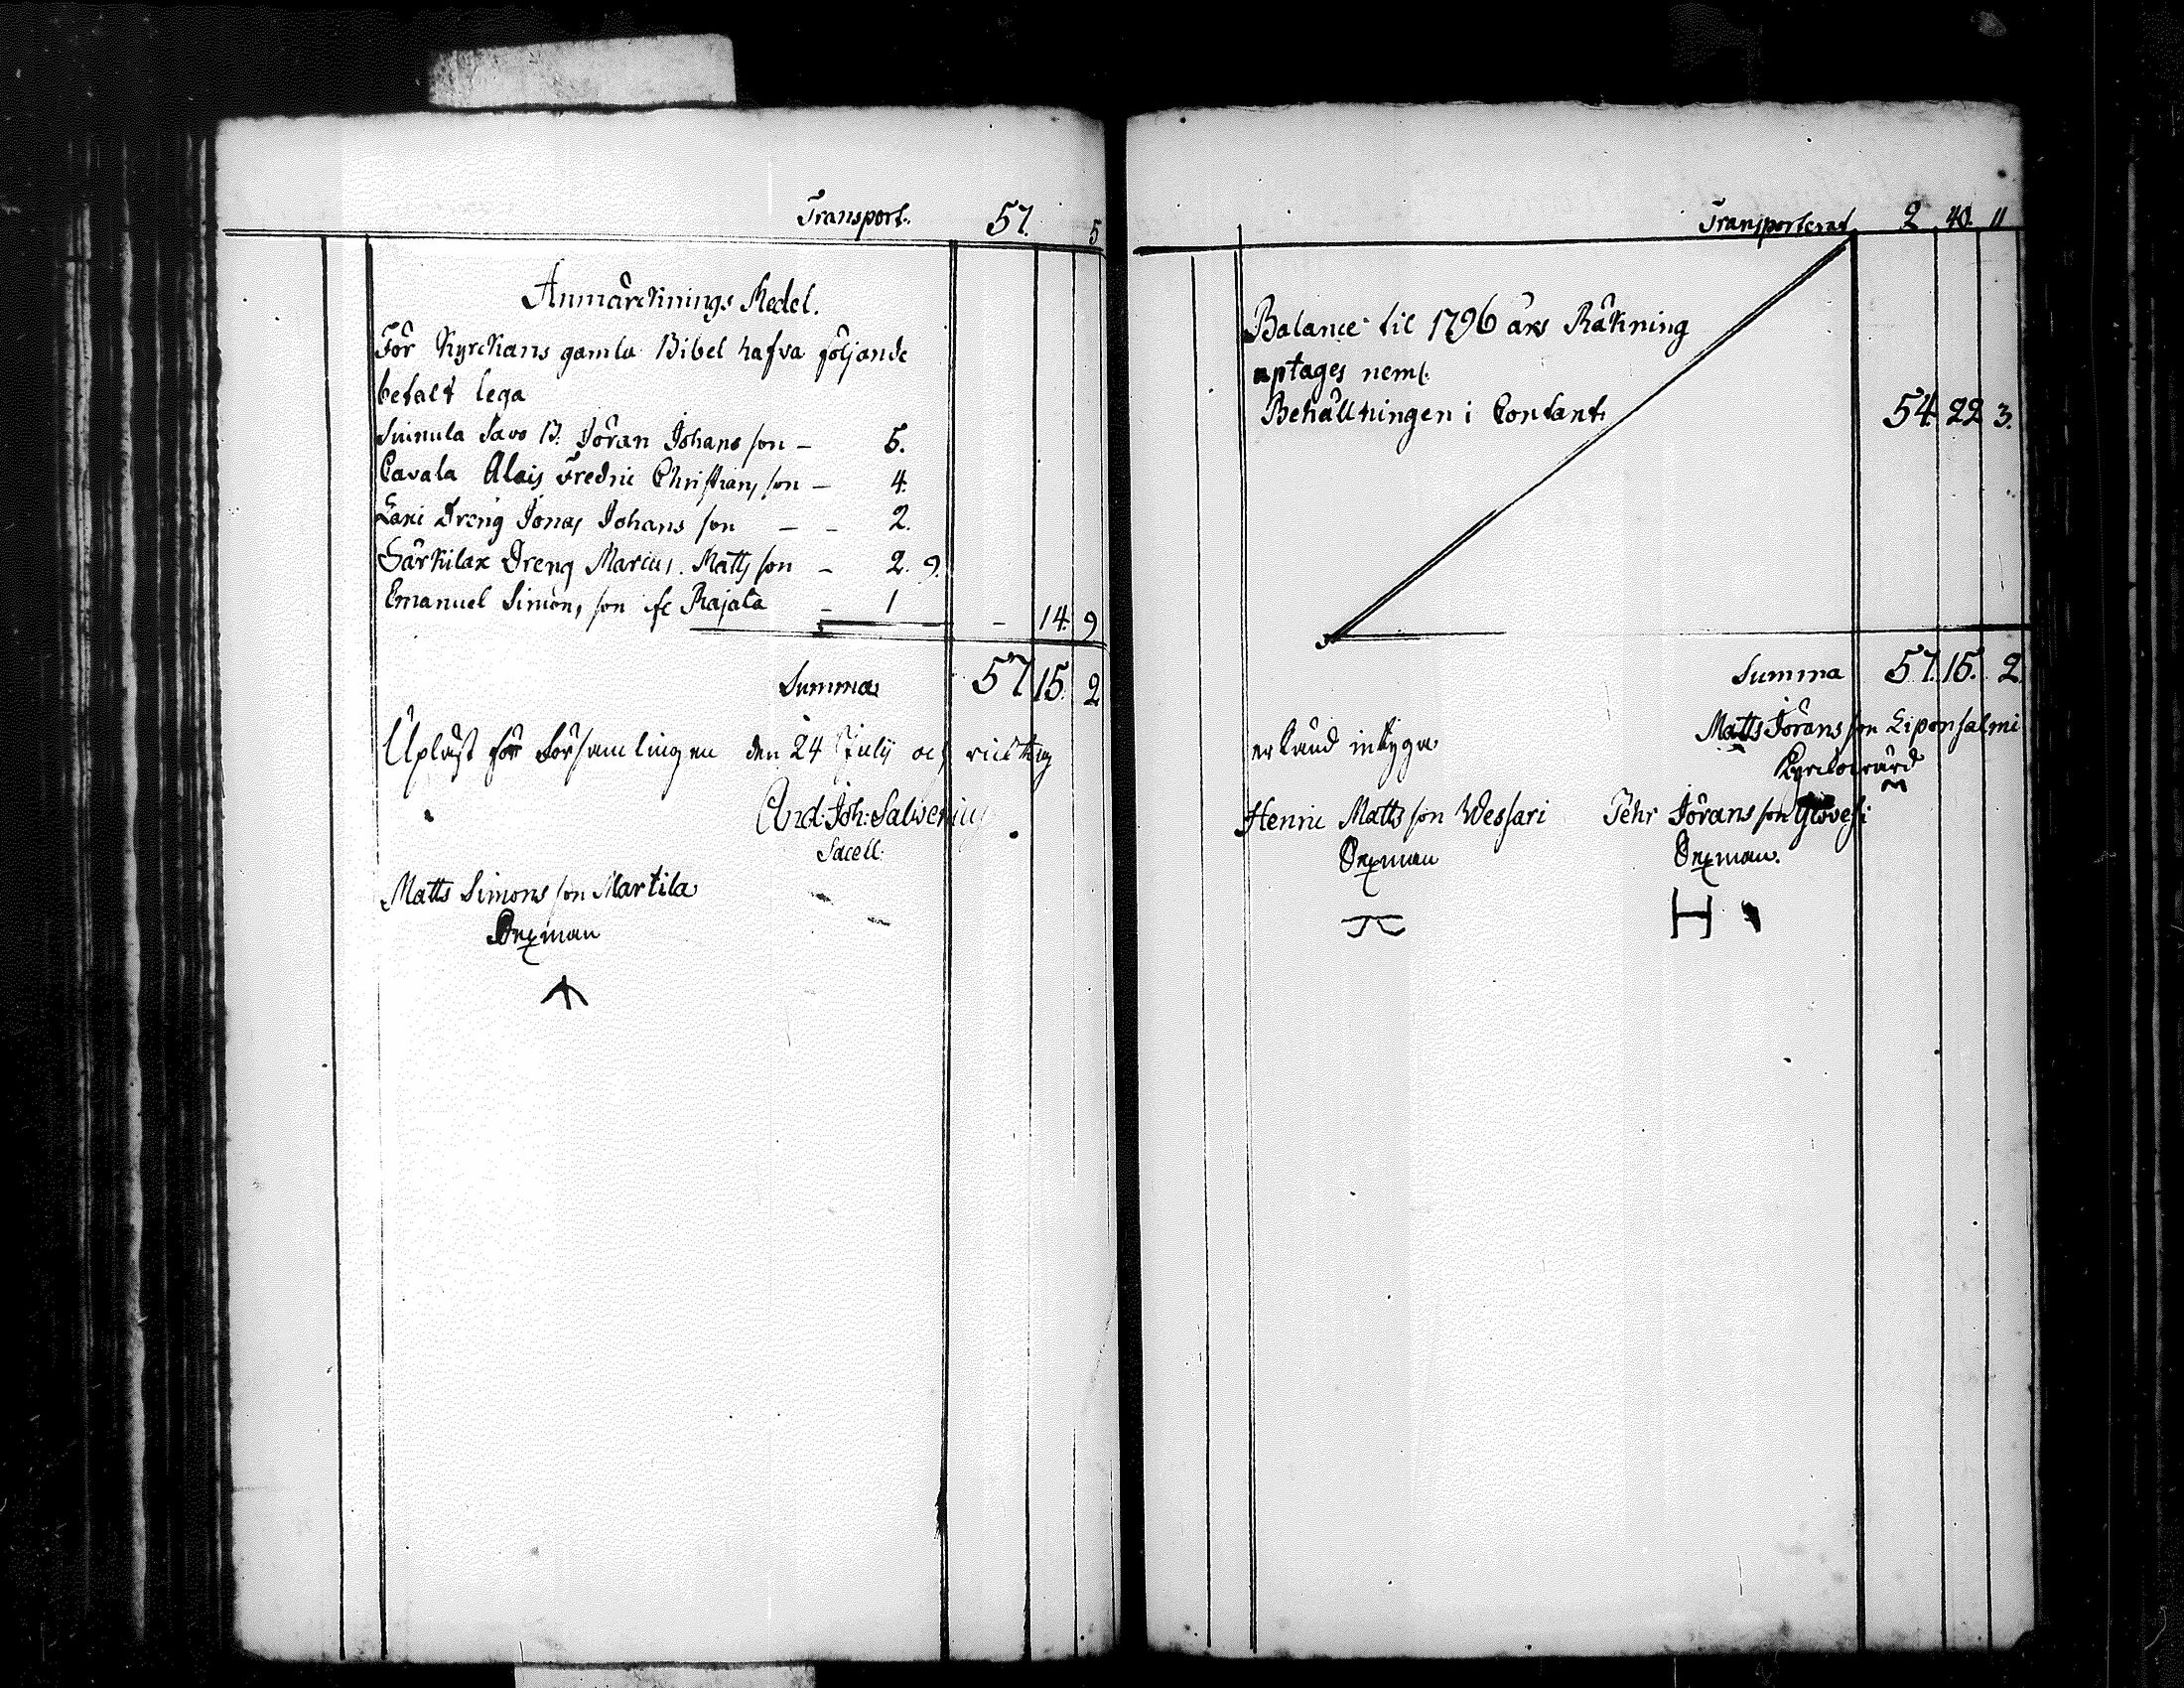 Transport. 57. 5
Anmärcknings Medel.
För Kyrckans gamla Bibel hafva följande
betalt lega
Suinula Savo B. Jöran Johans son – 5.
Cavala Alais Fredric Christians son – 4.
Laxi Dreng Jonas Johans son – – 2.
Särkilax Dreng Marcus Matts son – 2. 9.
Emanuel Simons son fr Rajala – 1 – 14. 9
Summa 57 15. 2
Upläst för Församlingen den 24 July och richtig
And: Joh: Salvenius
Sacell.
Matts Simons son Martila
Sexman
Transporterat 2 40. 11
Balance til 1796 års Räkning
uptages neml.
Behållningen i Contant. 54. 22 3.
Summa 57. 15. 2.
erkänd intyga
Matts Jörans son Liponsalmi
Kyrckovärd
Henric Matts son Wessari
Sexman
Pehr Jörans son
Sexman.
H